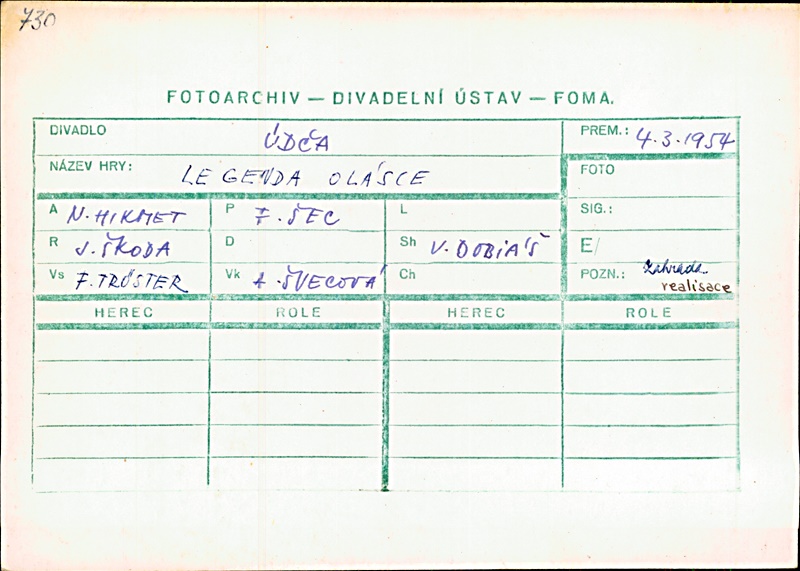 730
FOTOARCHIV — DIVADELNÍ ÚSTAV — FOMA.
DIVADLO ÚDČA PREM.: 4.3.1954
NÁZEV HRY: LEGENDA O LÁSCE FOTO
A N. HIKMET P F. ŠEC L SIG.:
R J. ŠKODA D Sh V. DOBIÁŠ E/
Vs F. TRÖSTER Vk A. ŠVECOVÁ Ch POZN.: Zahrada
realisace
HEREC ROLE HEREC ROLE